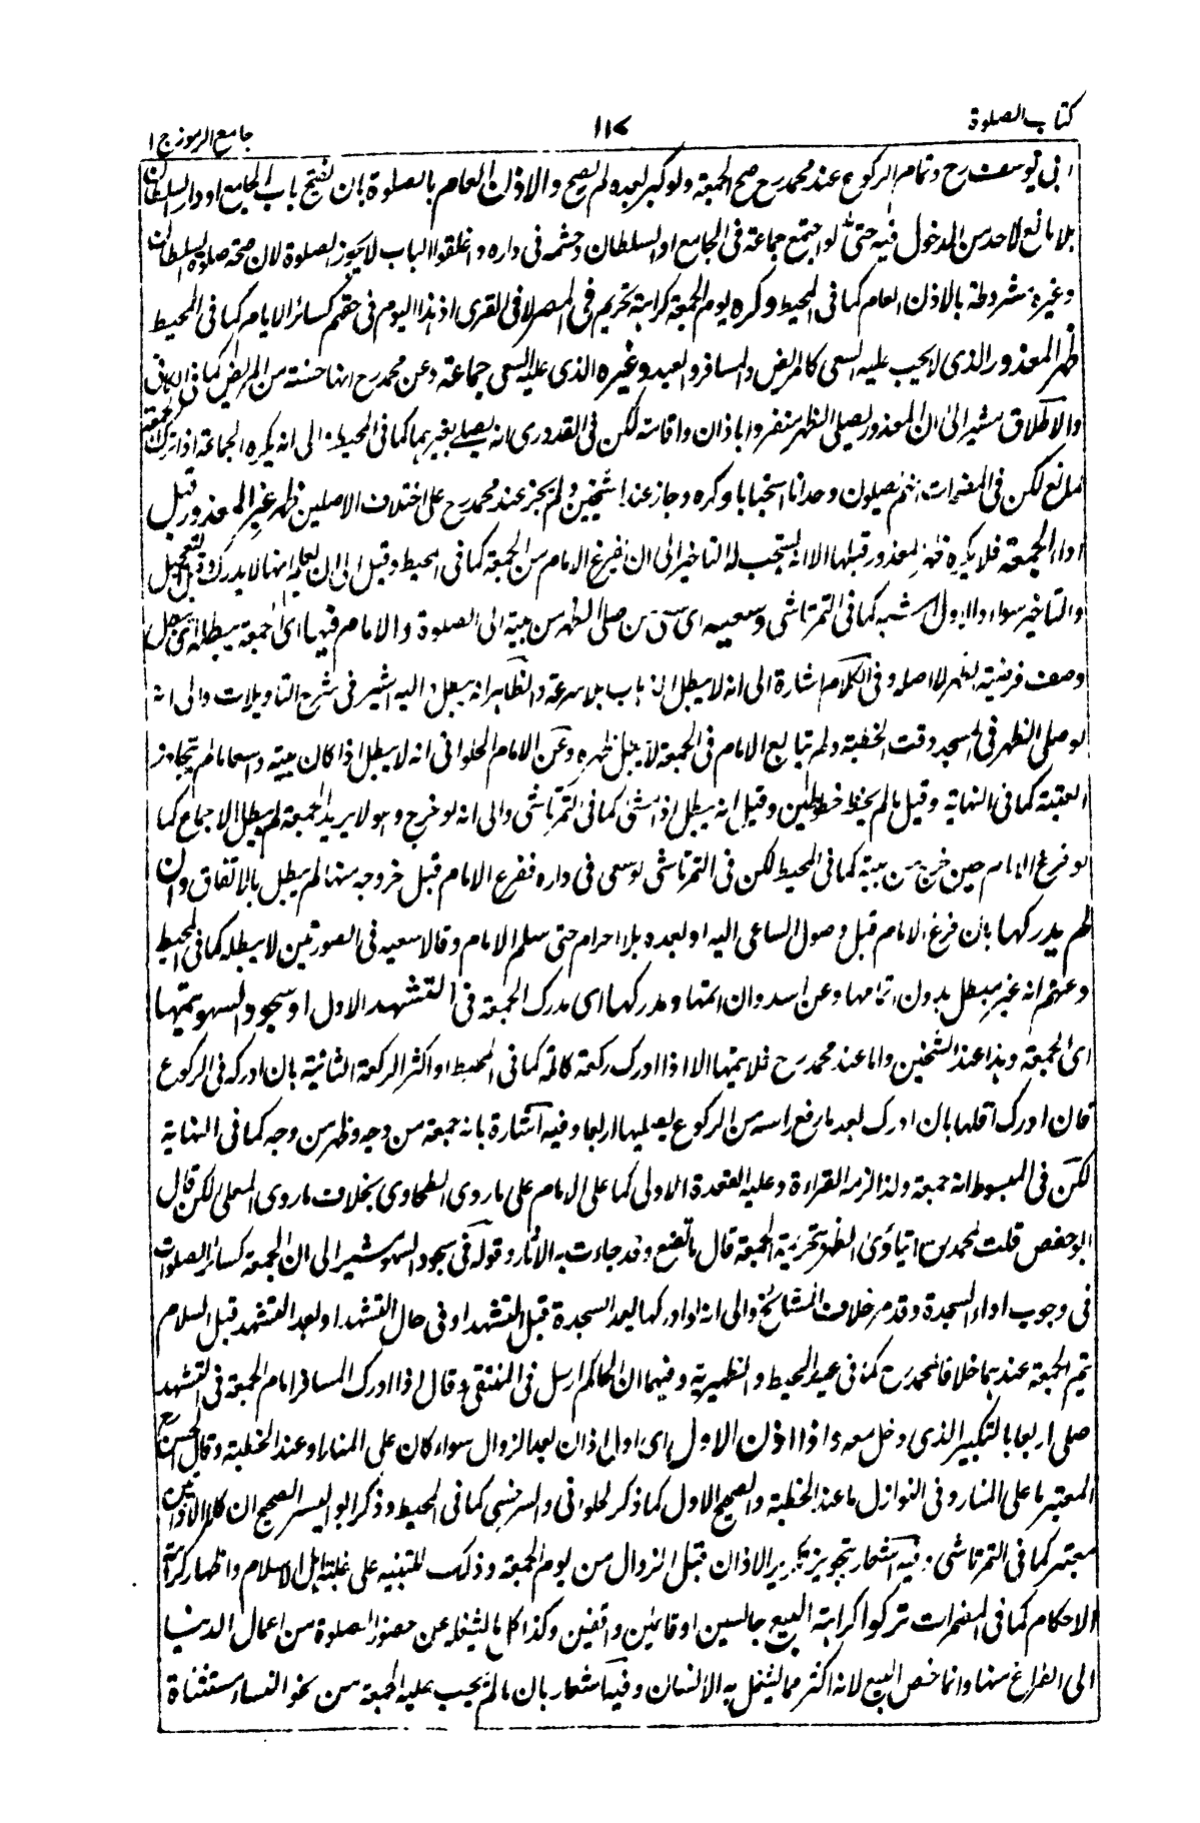 كتاب الصلوة
١١٧
جامع الرموز ج ١
ابى يوسف رح وتمام الركوع عند محمد رح صح الجمعة ولو كبر بعده لم يصح والاذن العام بالصلوة بان يفتح باب الجامع او دار السلطان
بلا مانع لاحد من الدخول فيه حتى لو اجتمع جماعة فى الجامع او السلطان وحشمه فى داره واغلقوا الباب لا يجوز الصلوة لان صحة صلوة السلطان
وغيره مشروطة بالاذن العام كما فى المحيط وكره يوم الجمعة كراهة تحريم فى المصر لا فى القرى اذ هذا اليوم فى حقهم كسائر الايام كما فى المحيط
ظهر المعذور الذى لا يجب عليه السعى كالمريض والمسافر والعبد وغيره الذى عليه السعى جماعة وعن محمد رح انها حسنة من المريض كما فى الكافى
والاطلاق مشير الى ان المعذور يصلى الظهر منفردا باذان واقامة لكن فى القدورى انه يصلى بغيرهما كما فى المحيط والى انه يكره الجماعة اذا ترك الجمعة
لمانع لكن فى المضمرات انهم يصلون وحدانا استحبابا وكره وجاز عند الشيخين ولم يجز عند محمد رح على اختلاف الاصلين ظهر غير المعذور قبل
اداء الجمعة فلا يكره ظهر المعذور قبلها الا انه يستحب له التاخير الى ان يفرغ الامام من الجمعة كما فى المحيط وقيل الى ان يعلم انها لا يدرك وقيل التعجيل
والتاخير سواء والاول اشبه كما فى التمرتاشى وسعيه اى سعى من صلى الظهر من بيته الى الصلوة والامام فيها اى الجمعة يبطله اى يبطل
وصف فرضية الظهر لا اصله وفى الكلام اشارة الى انه لا يبطل الذهاب بلا سرعة والظاهر انه يبطل اليه اشير فى شرح التاويلات والى انه
لو صلى الظهر فى المسجد وقت الخطبة ولم يتابع الامام فى الجمعة لا يبطل ظهره وعن الامام الحلوانى انه لا يبطل اذا كان بيته واسعا ما لم يتجاوز
العتبة كما فى النهاية وقيل ما لم يخط خطوتين وقيل انه يبطل اذا مشى كما فى التمرتاشى والى انه لو خرج وهو لا يريد الجمعة لم يبطل بالاجماع كما
لو فرغ الامام حين خرج من بيته كما فى المحيط لكن فى التمرتاشى لو سعى فى داره ففرغ الامام قبل خروجه منها لم يبطل بالاتفاق وان
لم يدركها بان فرغ الامام قبل وصول الساعى اليه او بعده بلا احرام حتى سلم الامام وقالا سعيه فى الصورتين لا يبطله كما فى المحيط
وعنهم انه غير مبطل بدون اتمامها وعن اسد وان اتمها ومدركها اى مدرك الجمعة فى التشهد الاول او سجود السهو يتمها
اى الجمعة وهذا عند الشيخين واما عند محمد رح فلا يتمها الا اذا ادرك ركعة كاملة كما فى المحيط او اكثر الركعة الثانية بان ادركه فى الركوع
فان ادرك اقلها بان ادرك بعد ما رفع راسه من الركوع يصليها اربعا وفيه اشارة بانه جمعة من وجه وظهر من وجه كما فى النهاية
لكن فى المبسوط انه جمعة ولذا لزمه القراءة وعليه القعدة الاولى كما على الامام على ما روى الطحاوى بخلاف ما روى المعلى لكن قال
ابو حفص قلت لمحمد رح ايتادى الظهر بتحريمة الجمعة قال ما تصنع وقد جاءت به الآثار وقوله فى سجود السهو مشير الى ان الجمعة كسائر الصلوات
فى وجوب اداء السجدة وقد مر خلاف المشائخ والى انه لو ادركها بعد السجدة قبل التشهد او فى حال التشهد او بعد التشهد قبل السلام
يتم الجمعة عندهما خلافا لمحمد رح كما فى عيد المحيط والظهيرية وفيهما ان الحاكم ارسل فى المنتقى وقال اذا ادرك المسافر امام الجمعة فى التشهد
صلى اربعا بالتكبير الذى دخل معه واذا اذن الاول اى اول اذان بعد الزوال سواء كان على المنار او عند الخطبة وقال الحسن رح
المعتبر ما على المنار وفى النوازل ما عند الخطبة والصحيح الاول كما ذكر الحلوانى والسرخسى كما فى المحيط وذكر ابو اليسر الصحيح ان كلا الاذانين
معتبر كما فى التمرتاشى وفيه اشعار بتجويز تكرير الاذان قبل الزوال من يوم الجمعة وذلك للتنبيه على غلبة اهل الاسلام واظهار كرامة
الاحكام كما فى المضمرات تركوا كراهة البيع جالسين او قائمين واقفين وكذا كل ما يشغله عن حضور الصلوة من اعمال الدنيا
الى الفراغ منها وانما خص البيع لانه اكثر مما يشتغل به الانسان وفيه اشعار بان ما لم يجب عليه الجمعة من نحو النساء مستثناة